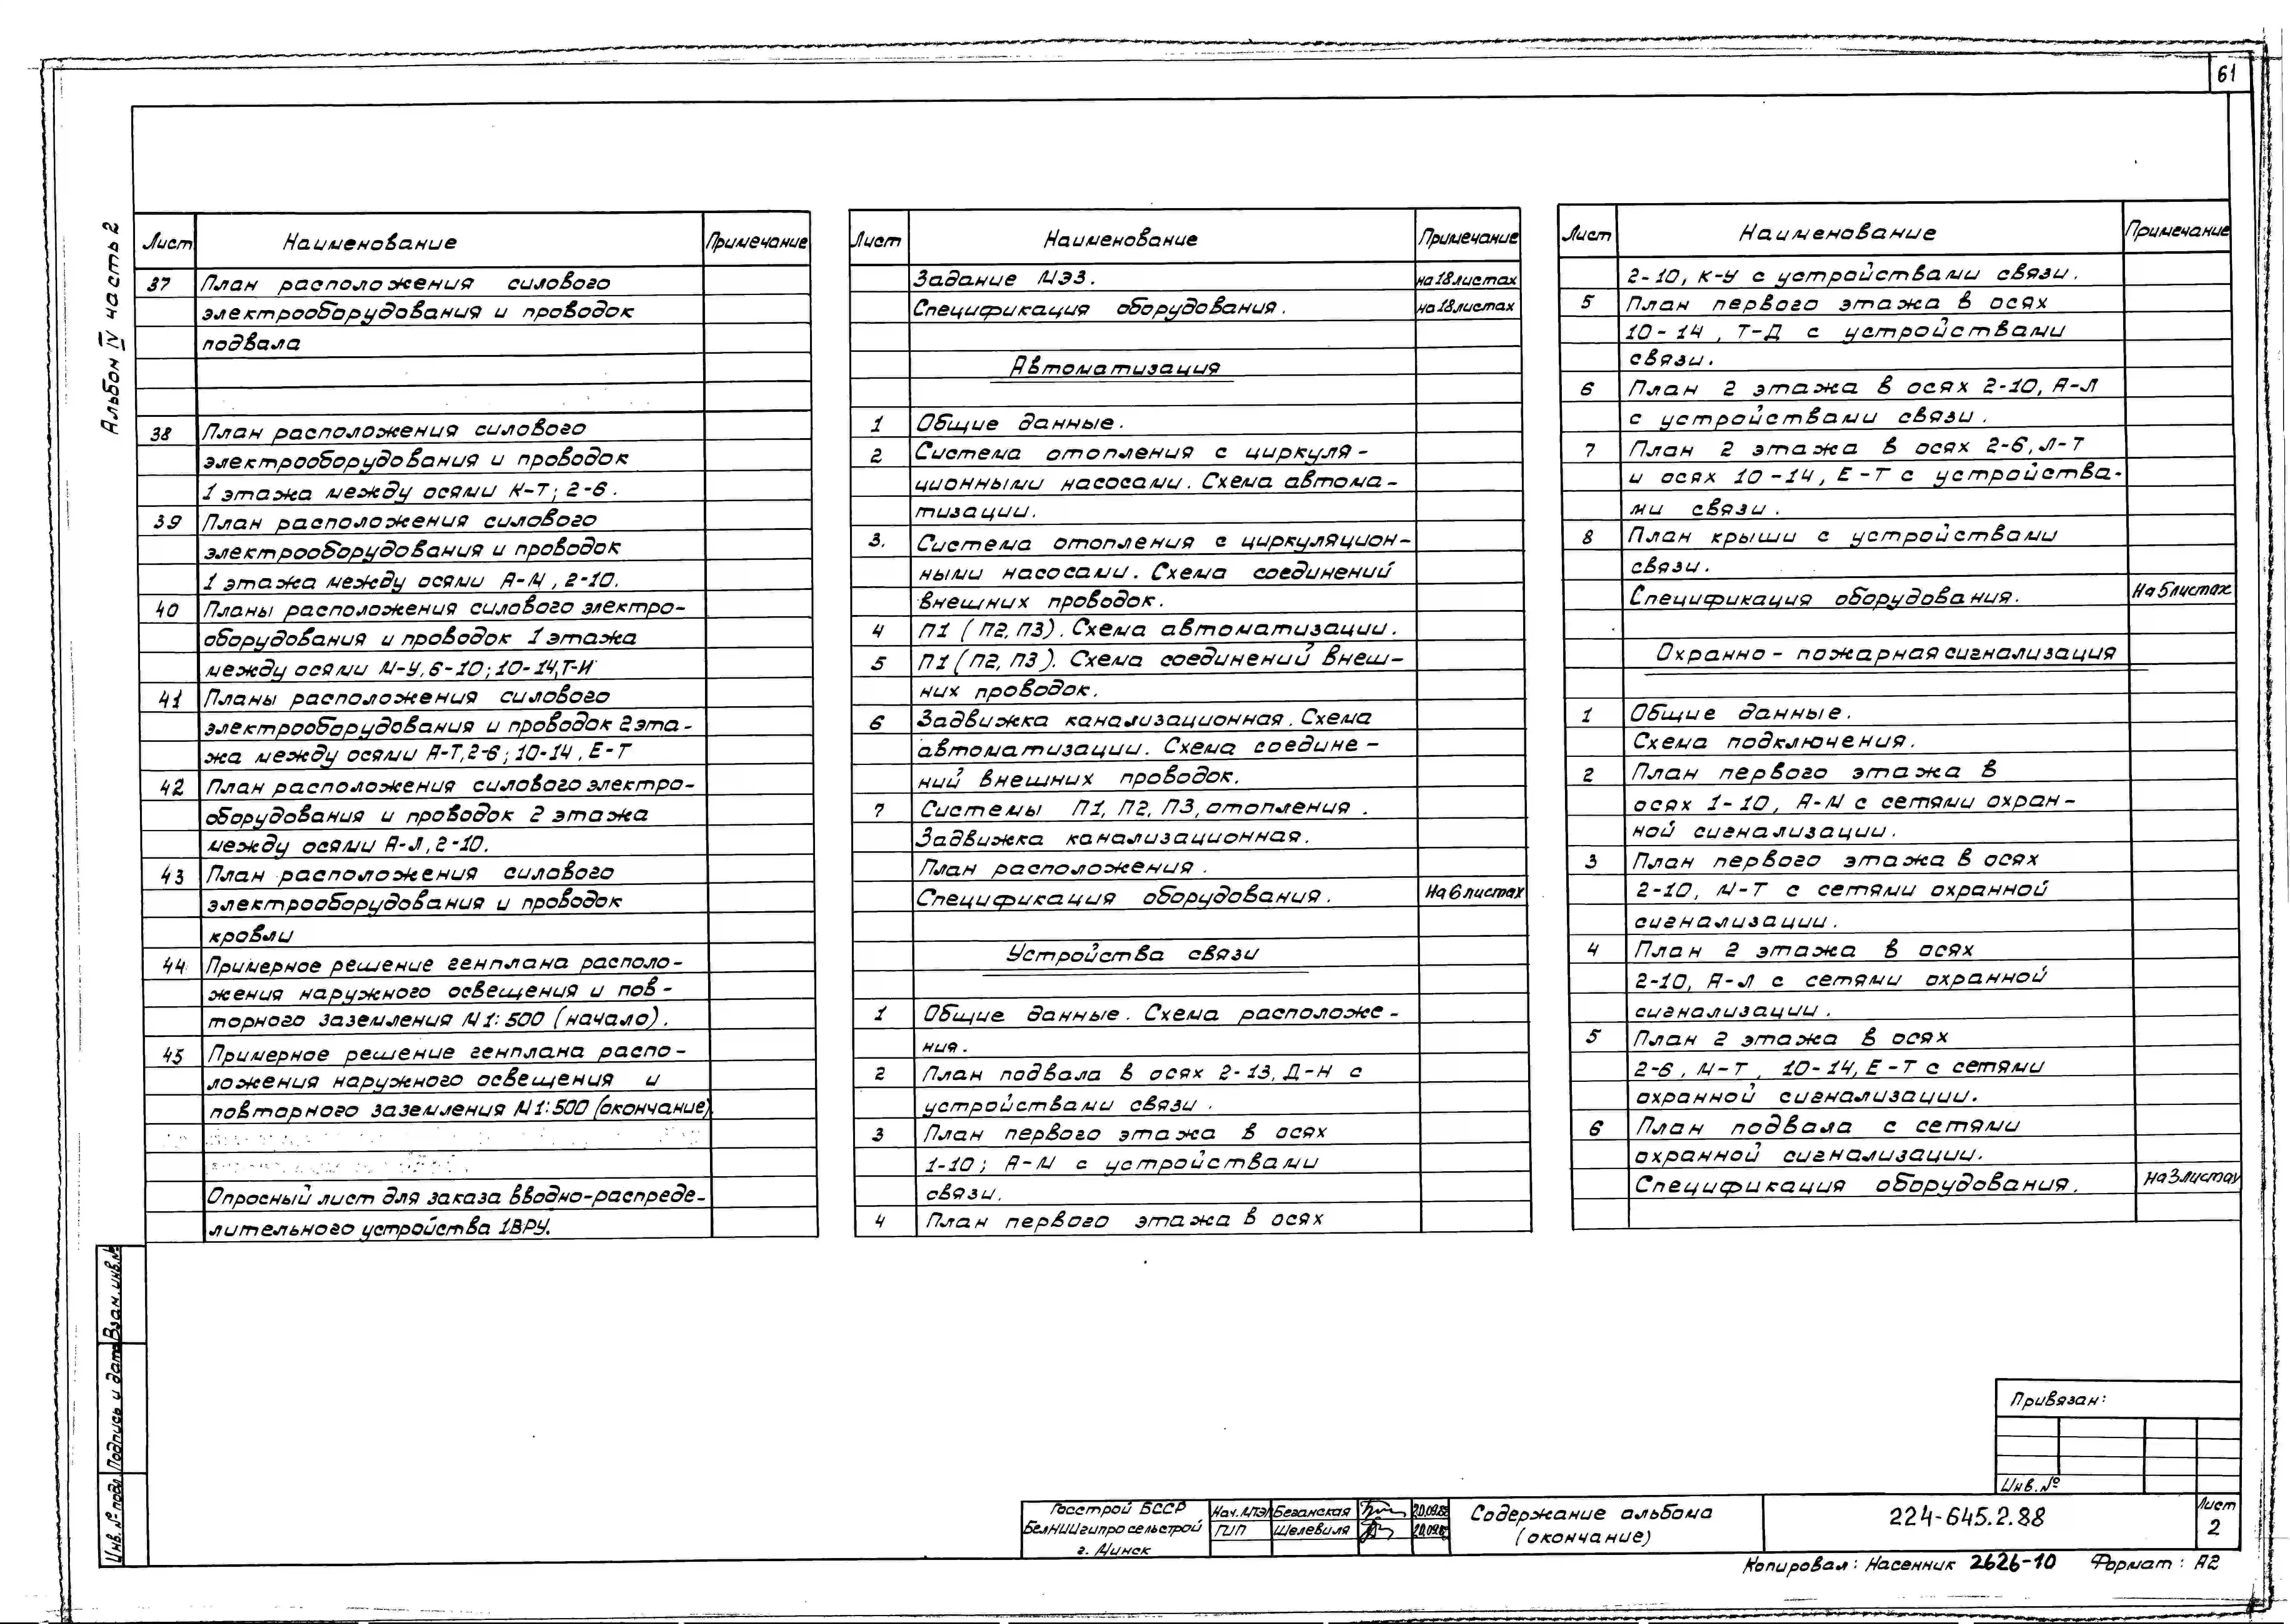 61
Альбом IV часть 2
Лист Наименование Примечание
37 План расположения силового
электрооборудования и проводок
подвала
38 План расположения силового
электрооборудования и проводок
1 этажа между осями К-Т; 2-6.
39 План расположения силового
электрооборудования и проводок
1 этажа между осями А-М, 2-10.
40 Планы расположения силового электро-
оборудования и проводок 1 этажа
между осями М-У, 6-10; 10-14, Т-И
41 Планы расположения силового
электрооборудования и проводок 2 эта-
жа между осями А-Т, 2-6; 10-14, Е-Т
42 План расположения силового электро-
оборудования и проводок 2 этажа
между осями А-Л, 2-10.
43 План расположения силового
электрооборудования и проводок
кровли
44 Примерное решение генплана располо-
жения наружного освещения и пов-
торного заземления М1:500 (начало).
45 Примерное решение генплана распо-
ложения наружного освещения и
повторного заземления М1:500 (окончание)
Опросный лист для заказа вводно-распреде-
лительного устройства 1ВРУ.
Лист Наименование Примечание
Задание МЭЗ. на 18 листах
Спецификация оборудования. на 18 листах
Автоматизация
1 Общие данные.
2 Система отопления с циркуля-
ционными насосами. Схема автома-
тизации.
3. Система отопления с циркуляцион-
ными насосами. Схема соединений
внешних проводок.
4 П1 (П2, П3). Схема автоматизации.
5 П1 (П2, П3). Схема соединений внеш-
них проводок.
6 Задвижка канализационная. Схема
автоматизации. Схема соедине-
ний внешних проводок.
7 Системы П1, П2, П3, отопления.
Задвижка канализационная.
План расположения.
Спецификация оборудования. На 6 листах
Устройства связи
1 Общие данные. Схема расположе-
ния.
2 План подвала в осях 2-13, Д-Н с
устройствами связи.
3 План первого этажа в осях
1-10; А-М с устройствами
связи.
4 План первого этажа в осях
Лист Наименование Примечание
2-10, К-У с устройствами связи.
5 План первого этажа в осях
10-14, Т-Д с устройствами
связи.
6 План 2 этажа в осях 2-10, А-Л
с устройствами связи.
7 План 2 этажа в осях 2-6, Л-Т
и осях 10-14, Е-Т с устройства-
ми связи.
8 План крыши с устройствами
связи.
Спецификация оборудования. На 5 листах
Охранно-пожарная сигнализация
1 Общие данные.
Схема подключения.
2 План первого этажа в
осях 1-10, А-М с сетями охран-
ной сигнализации.
3 План первого этажа в осях
2-10, М-Т с сетями охранной
сигнализации.
4 План 2 этажа в осях
2-10, А-Л с сетями охранной
сигнализации.
5 План 2 этажа в осях
2-6, М-Т, 10-14, Е-Т с сетями
охранной сигнализации.
6 План подвала с сетями
охранной сигнализации.
Спецификация оборудования. На 3 листах
Инв. № подл. Подпись и дата Взам. инв. №
Привязан:
Инв. №
Госстрой БССР
БелНИИгипросельстрой
г. Минск
Нач. МПЭЛ Беганская
ГИП Шелевиля
Содержание альбома
(окончание)
224-645.2.88
Лист
2
Копировал: Насенник 2626-10 Формат: А2